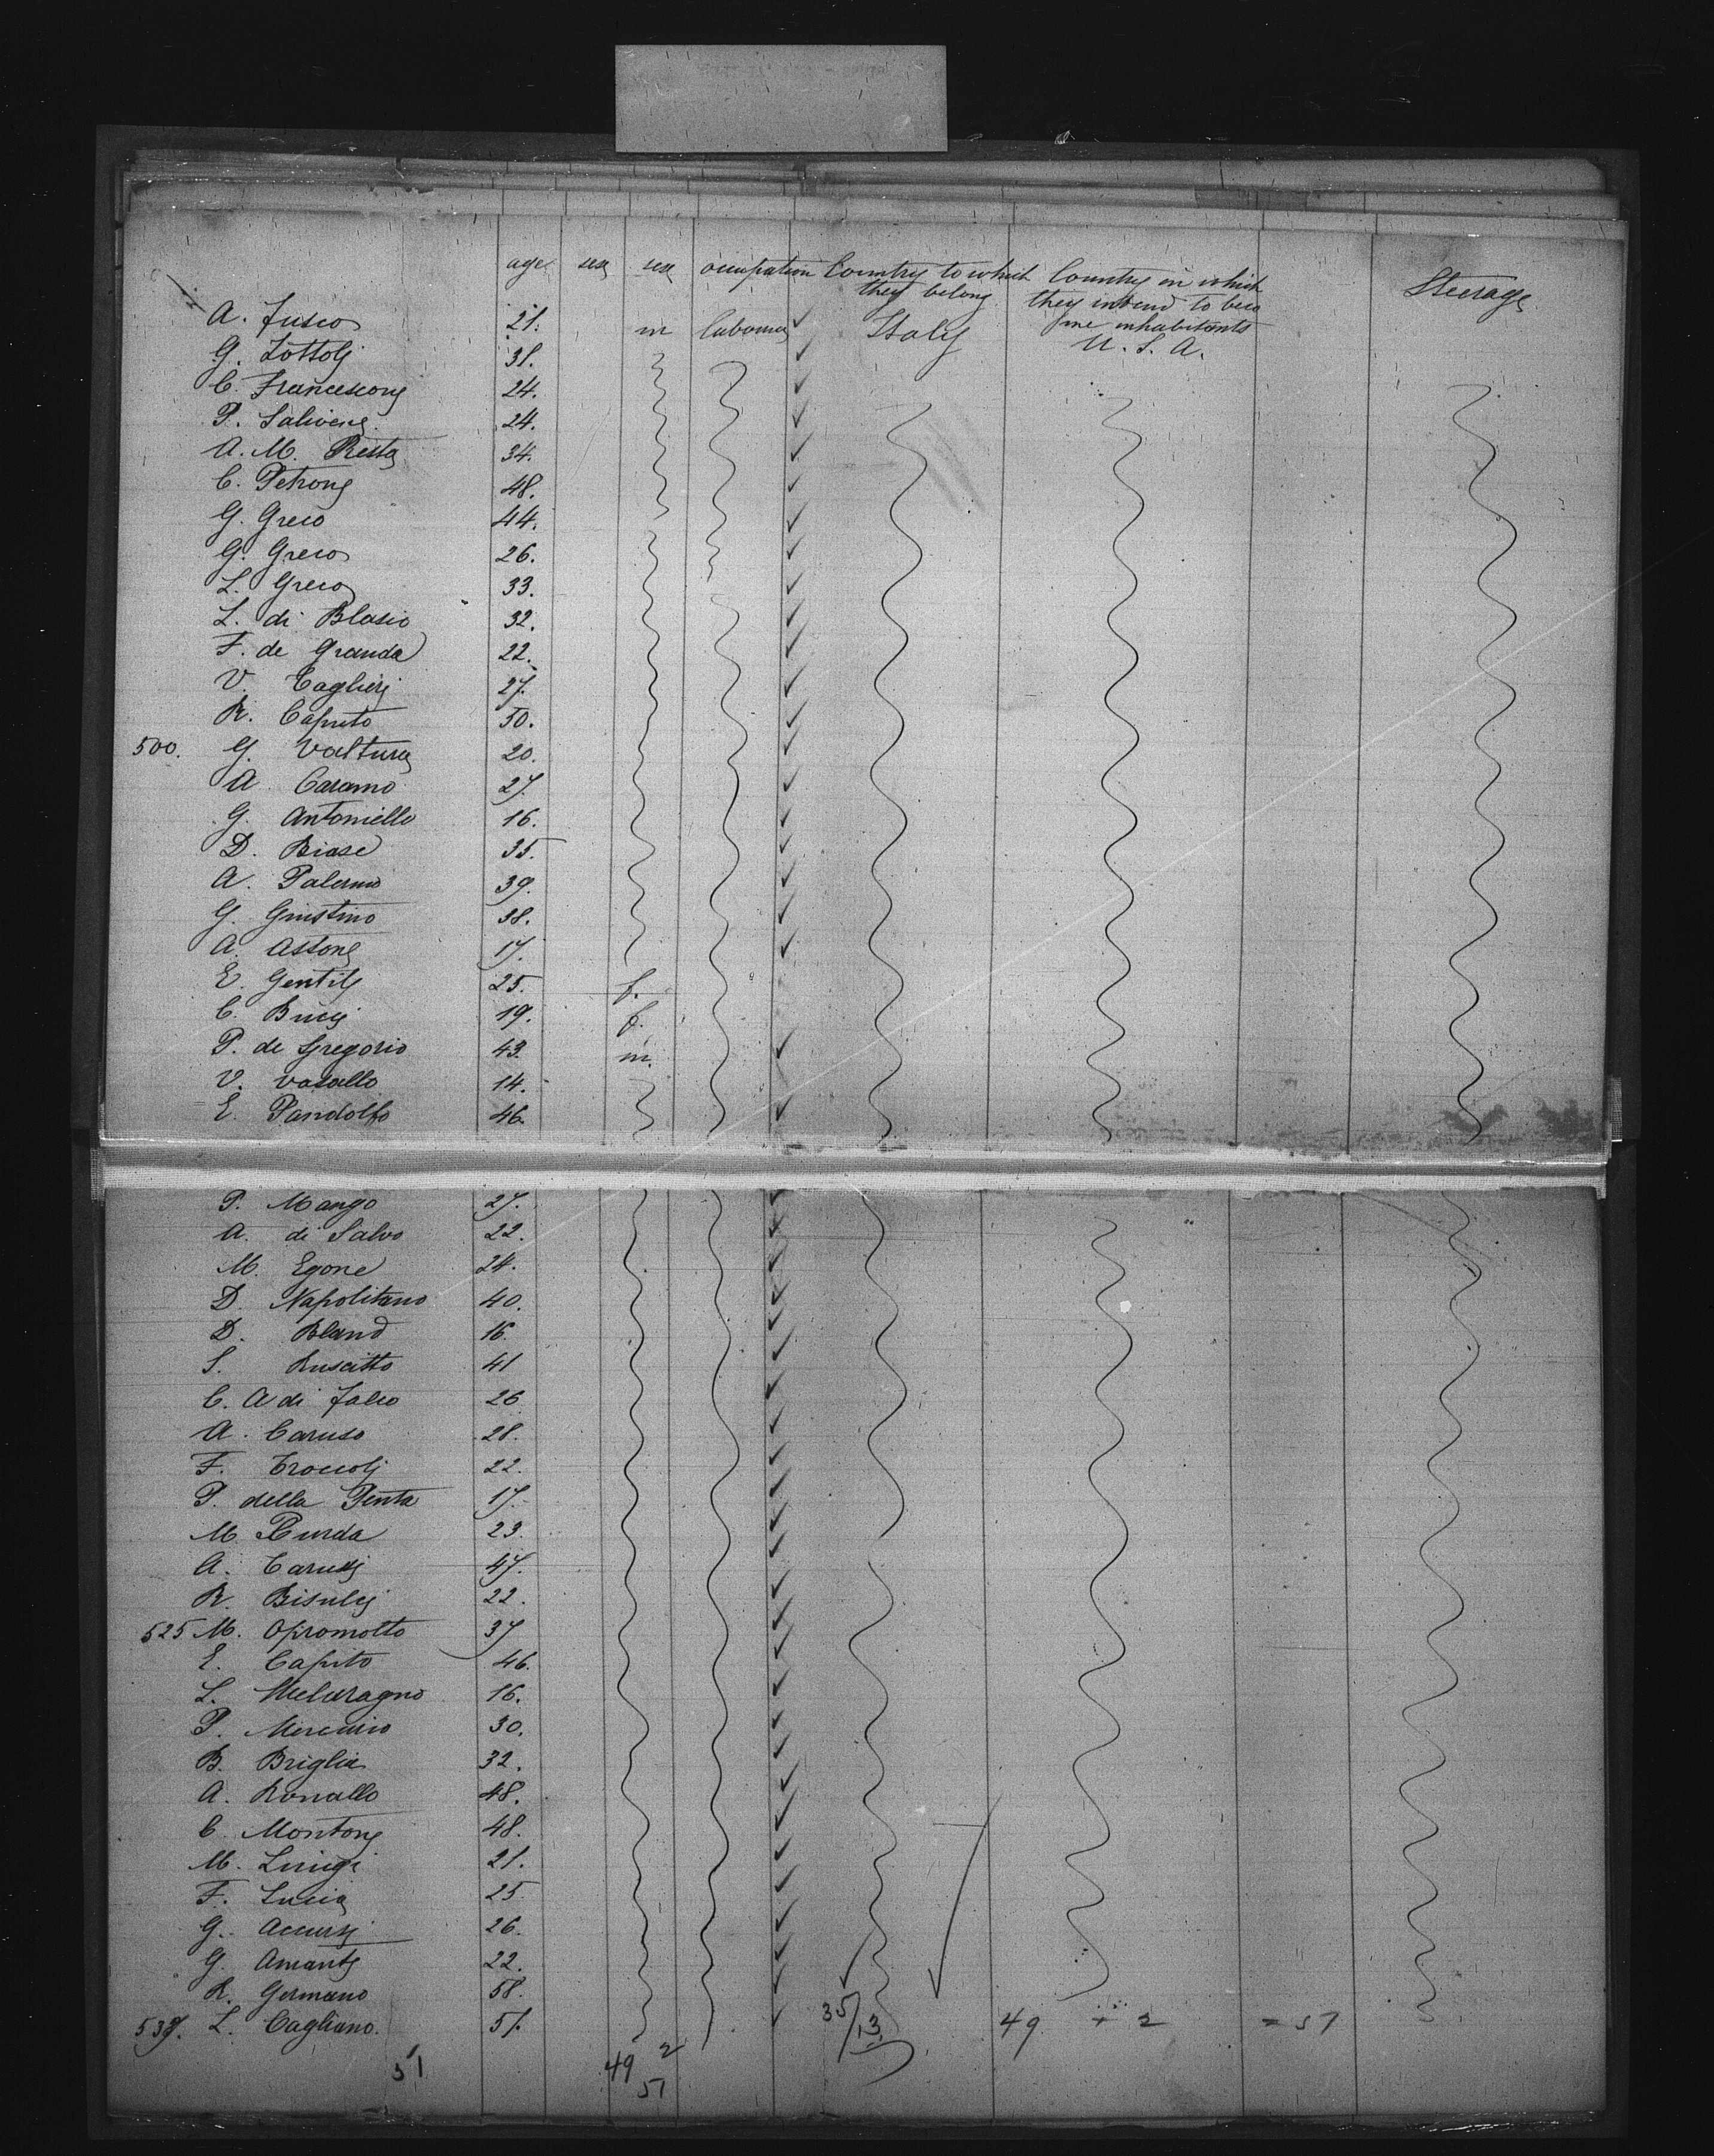 age sex sex occupation Country to which they belong Country in which they intend to beco me inhabitants Steerage
A. Fusco 21. m labourer Italy U. S. A.
G. Zottoly 31.
C. Francescony 24.
P. 24.
A. M. Resta 34.
C. Petrone 48.
G. Greco 44.
G. Greco 26.
L. Greco 33.
L. di Blasio 32.
F. de Granda 22.
V. Taglieri 27.
R. Caputo 50.
500. G. Valtura 20.
A. Caramo 27.
G. Antoniello 16.
D. Biase 35.
A. Palermo 39.
G. Giustino 38.
A. Astone 17.
E. Gentile 25. f.
C. Bucci 19. f.
P. de Gregorio 43. m.
V. Vasallo 14.
E. Pandolfo 46.
P. Mango 27.
A. di Salvo 22.
M. Egone 24.
D. Napolitano 40.
D. Bland 16.
S. Ruscitto 41
C. A di Falco 26
A. Caruso 28.
F. Troccoly 22.
P. della Penta 17.
M. Burda 23.
A. 47.
R. 22.
525 M. Opromolto 37
E. Caputo 46.
L. Melaragno 16.
P. Mercurio 30.
B. Briglia 32.
A. Ronallo 48.
C. Montone 48.
M. Luigi 21.
F. Lucia 25.
G. Accursy 26.
G. Amante 22.
R. Germano 58.
537. L. Cagliano. 51.
35/13 49 + 2 = 51
51 49 2
51